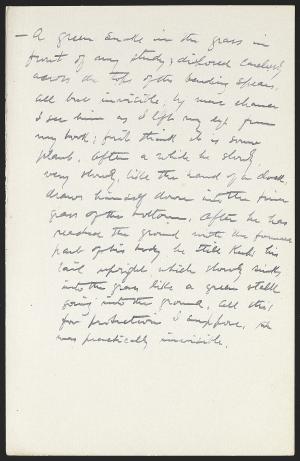 — A green snake in the grass in
front of my study, disposed carelessly
across the tops of the bending spears,
all but invisible, by mere chance
I see him as I lift my eyes from
my book; first think it is some
plant. After a while he slowly,
very slowly, like the hand of a clock,
draws himself down into the finer
grass of the bottom. After he has
reached the ground with the forward
part of his body he still keeps his
tail upright which slowly sinks
into the grass like a green stalk
going into the ground. All this
for protection I suppose, he
was practically invisible.